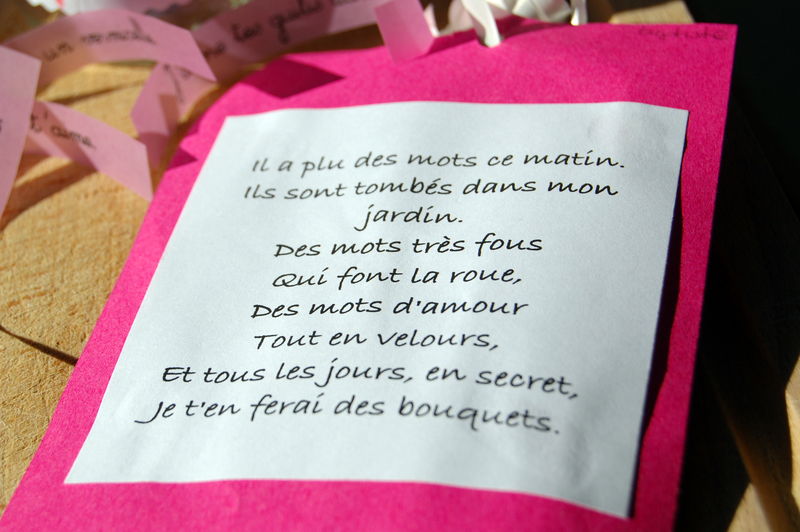 Il a plu des mots ce matin.
Ils sont tombés dans mon
jardin.
Des mots très fous
Qui font la roue,
Des mots d'amour
Tout en velours,
Et tous les jours, en secret,
Je t'en ferai des bouquets.
un
t'aime